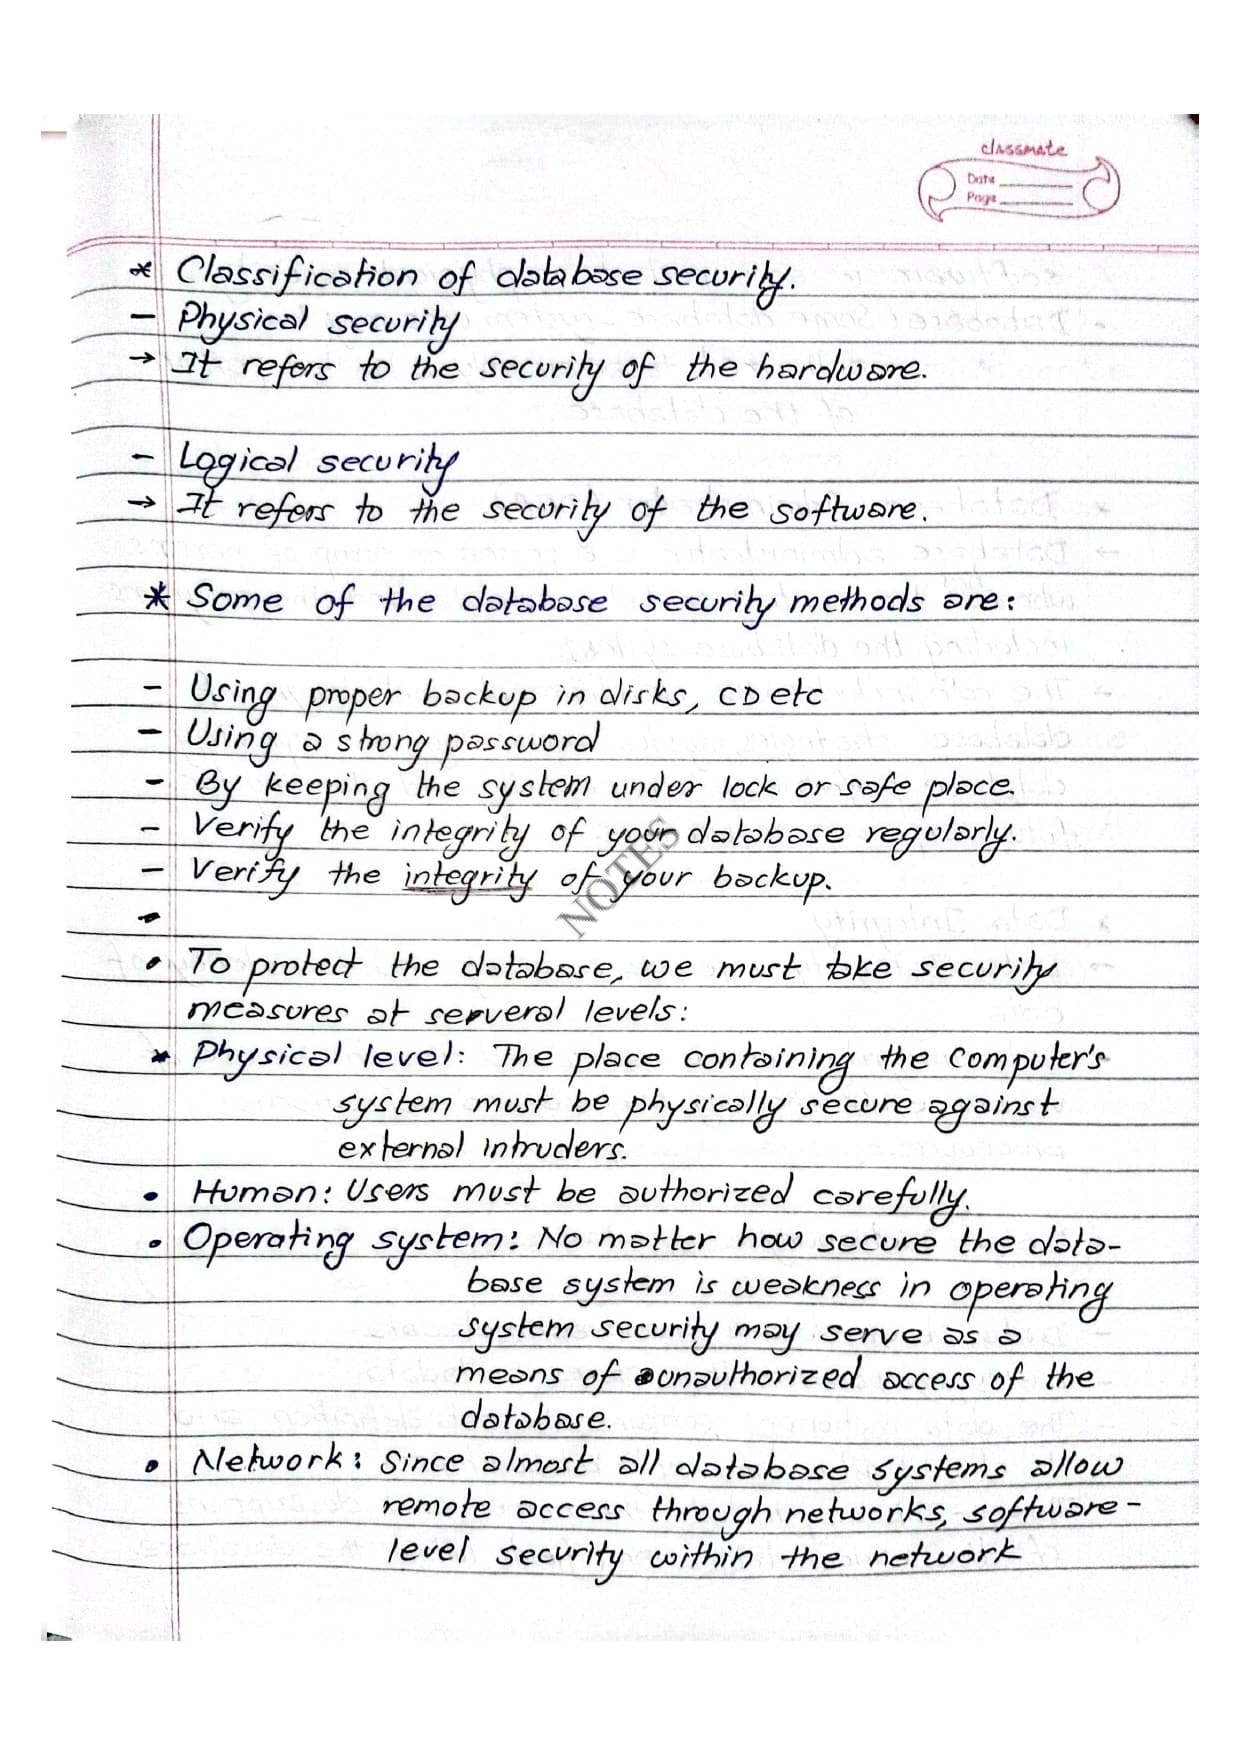 classmate
Date
Page
* Classification of database security.
– Physical security
→ It refers to the security of the hardware.
– Logical security
→ It refers to the security of the software.
* Some of the database security methods are:
– Using proper backup in disks, CD etc
– Using a strong password
– By keeping the system under lock or safe place.
– Verify the integrity of your database regularly.
– Verify the integrity of your backup.
NOTES
• To protect the database, we must take security
measures at serveral levels:
* Physical level: The place containing the computer's
system must be physically secure against
external intruders.
• Human: Users must be authorized carefully.
• Operating system: No matter how secure the data-
base system is weakness in operating
system security may serve as a
means of unauthorized access of the
database.
• Network: Since almost all database systems allow
remote access through networks, software-
level security within the network